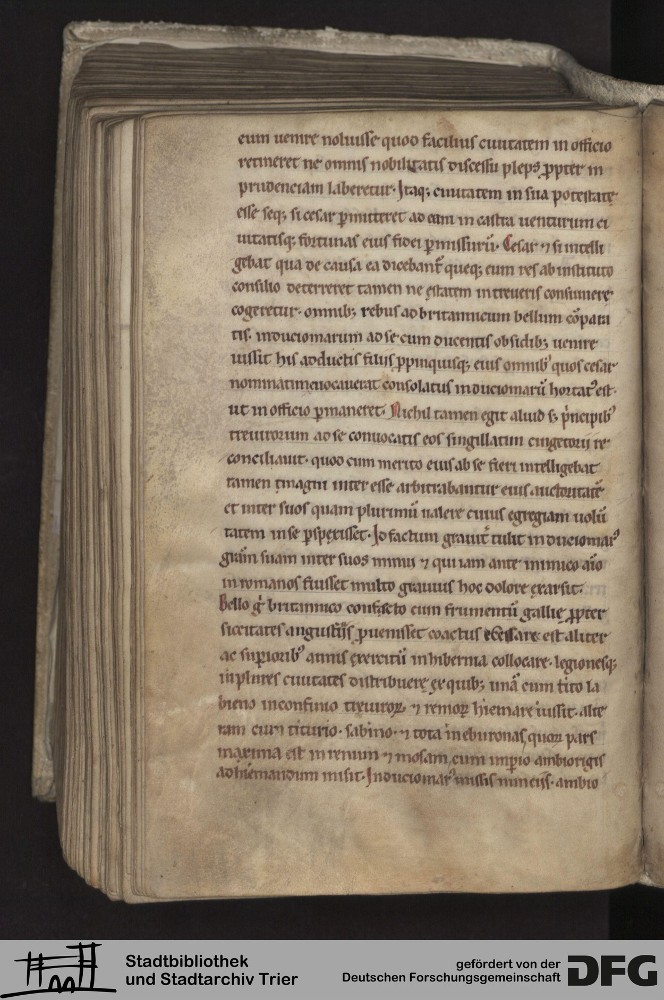 eum uenire noluisse quod facilius ciuitatem in officio
retineret ne omnis nobilitatis discessu plebs ꝓpter in
prudenciam laberetur. Itaq; ciuitatem in sua potestate
esse seq; si cesar ꝑmitteret ad eum in castra uenturum ci
uitatisq; fortunas eius fidei ꝑmissurū. Cesar ⁊ si intelli
gebat qua de causa ea dicebant̃ queq; eum res ab instituto
consilio deterreret tamen ne ęstatem in treueris consumere
cogeretur. omnib; rebus ad britannicum bellum cōpara
tis. induciomarum ad se cum ducentis obsidib; uenire
iussit his adductis filiis ꝓpinquisq; eius omnibꝰ quos cesar
nominatim euocauerat consolatus induciomarū hortatꝰ est.
ut in officio ꝑmaneret. Nichil tamen egit aliud s; p̃ncipibꝰ
treuirorum ad se conuocatis eos singillatim cingetorii re
conciliauit. quod cum merito eius ab se fieri intelligebat
tamen magni inter esse arbitrabantur eius auctoritatē
et inter suos quam plurimū ualere cuius egregiam uolū
tatem in se ꝑspexisset. Id factum grauit̃ tulit induciomarꝰ
grām suam inter suos minui ⁊ qui iam ante inimico aīo
in romanos fuisset multo grauius hoc dolore exarsit.
Bello g̃ britannico confecto cum frumentū gallię ꝓpter
siccitates angustiis ꝓuenisset coactus est aliter
ac suꝑioribꝰ annis exercitū in hiberna collocare. legionesq;
in plures ciuitates distribuere ex quib; unā cum tito la
bieno in confinio treuiroꝝ ⁊ remoꝝ hiemare iussit. alte
ram cum titurio. sabino. ⁊ cota in eburonas quoꝝ pars
maxima est inter renum ⁊ mosam cum imꝑio ambiorigis
ad hiemandum misit. Induciomarꝰ missis nunciis. ambio
Stadtbibliothek
und Stadtarchiv Trier
gefördert von der
Deutschen Forschungsgemeinschaft
DFG